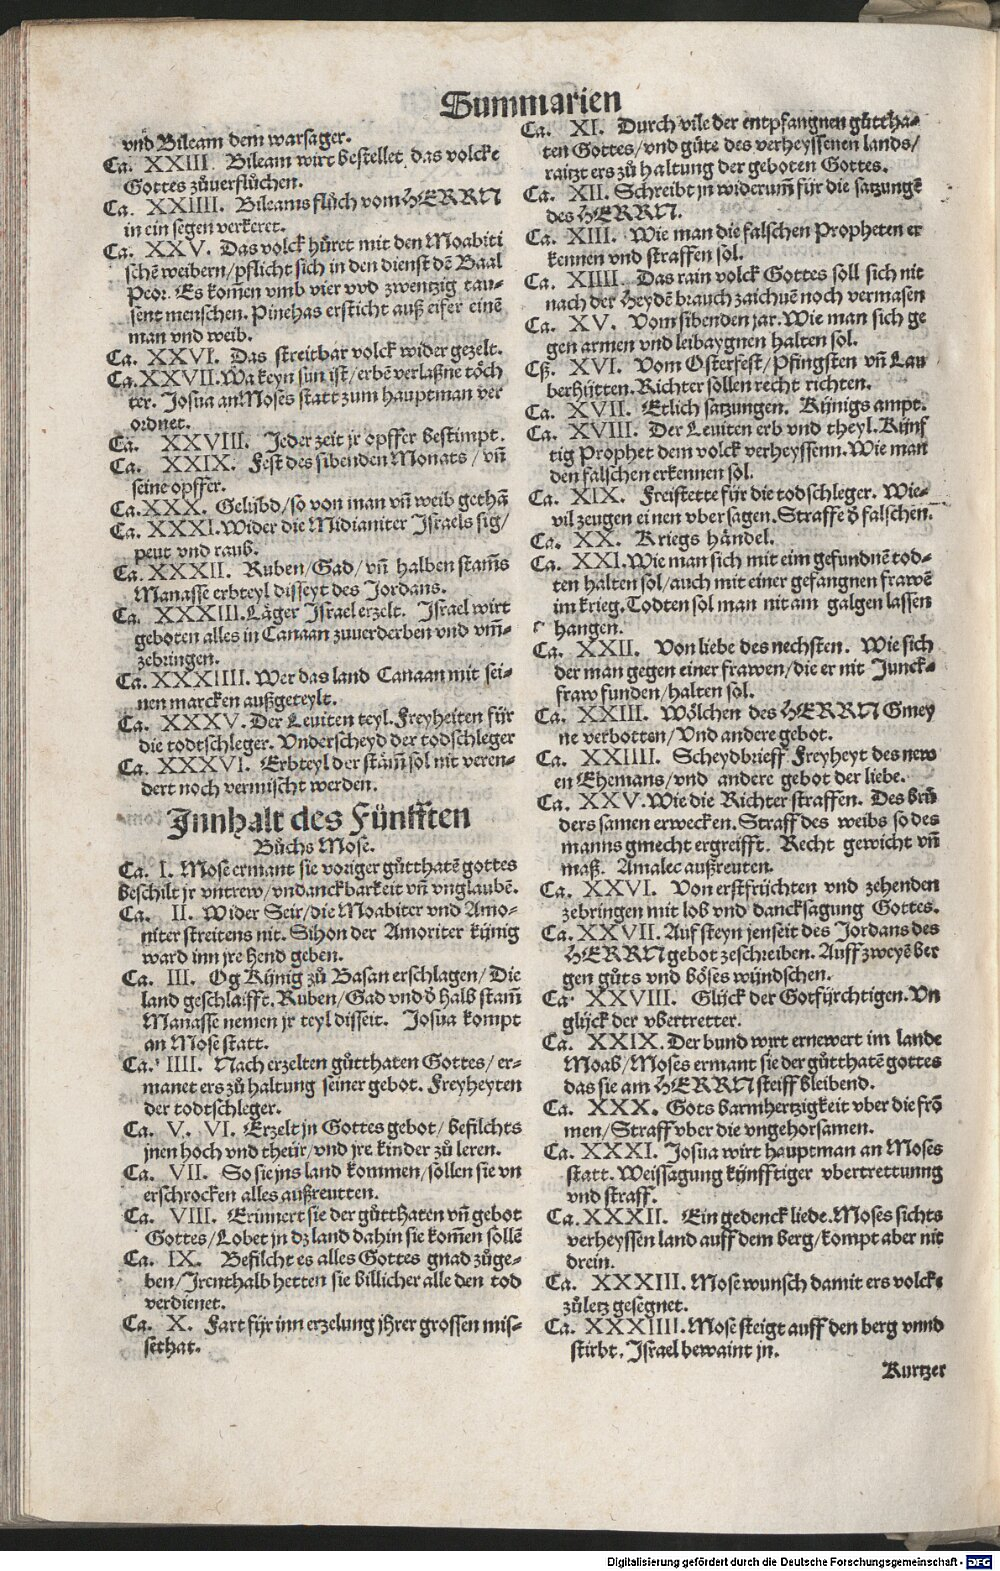 Summarien
vnd Bileam dem warsager.
Ca. XXIII. Bileam wirt bestellet, das volcke
Gottes zůuerflůchen.
Ca. XXIIII. Bileams flůch vom HERRN
in ein segen verkeret.
Ca. XXV. Das volck hůret mit den Moabiti
schē weibern/pflicht sich in den dienst dē Baal
Peor. Es kom̄en vmb vier vvd zwentzig tau-
sent menschen. Pinehas ersticht auß eifer einē
man vnd weib.
Ca. XXVI. Das streitbar volck wider gezelt.
Ca. XXVII. Wa keyn sun ist/erbē verlaßne toͤch
ter. Josua an Moses statt zum hauptman ver
ordnet.
Ca. XXVIII. Jeder zeit jr opffer bestimpt.
Ca. XXIX. Fest des sibenden Monats/vn̄
seine opffer.
Ca. XXX. Gelübd/so von man vn̄ weib gethā
Ca. XXXI. Wider die Midianiter Israels sig/
peut vnd raub.
Ca. XXXII. Ruben/Gad/vn̄ halben stam̄s
Manasse erbteyl disseyt des Jordans.
Ca. XXXIII. Läger Israel erzelt. Israel wirt
geboten alles in Canaan zuuerderben vnd vm̄-
zebringen.
Ca. XXXIIII. Wer das land Canaan mit sei-
nen marcken außgeteylt.
Ca. XXXV. Der Leuiten teyl. Freyheiten für
die todtschleger. Vnderscheyd der todschleger
Ca. XXXVI. Erbteyl der stäm̄ sol nit veren-
dert noch vermischt werden.
Innhalt des Fünfften
Bůchs Mose.
Ca. I. Mose ermant sie voriger gůtthatē gottes
beschilt jr vntrew/vndanckbarkeit vn̄ vnglaubē.
Ca. II. Wider Seir/die Moabiter vnd Amo-
niter streitens nit. Sihon der Amoriter künig
ward inn jre hend geben.
Ca. III. Og Künig zů Basan erschlagen/Die
land geschlaifft. Ruben/Gad vnd d̕ halb stam̄
Manasse nemen jr teyl disseit. Josua kompt
an Mose statt.
Ca. IIII. Nach erzelten gůtthaten Gottes/er-
manet ers zů haltung seiner gebot. Freyheyten
der todtschleger.
Ca. V. VI. Erzelt jn Gottes gebot/befilchts
jnen hoch vnd theür/vnd jre kinder zů leren.
Ca. VII. So sie jns land kommen/sollen sie vn
erschrocken alles außreutten.
Ca. VIII. Erinnert sie der gůtthaten vn̄ gebot
Gottes/Lobet jn dz land dahin sie kom̄en sollē
Ca. IX. Befilcht es alles Gottes gnad zůge-
ben/Irenthalb hetten sie billicher alle den tod
verdienet.
Ca. X. Fart für inn erzelung jhrer grossen mis-
sethat.
Ca. XI. Durch vile der entpfangnen gůttha-
ten Gottes/vnd güte des verheyssenen lands/
raitzt ers zů haltung der geboten Gottes.
Ca. XII. Schreibt jn widerum̄ für die satzungē
des HERRN.
Ca. XIII. Wie man die falschen Propheten er
kennen vnd straffen sol.
Ca. XIIII. Das rain volck Gottes soll sich nit
nach der Heydē brauch zaichnē noch vermasen
Ca. XV. Vom sibenden jar. Wie man sich ge
gen armen vnd leibaygnen halten sol.
Cß. XVI. Vom Osterfest/Pfingsten vn̄ Lau
berhütten. Richter sollen recht richten.
Ca. XVII. Etlich satzungen. Künigs ampt.
Ca. XVIII. Der Leuiten erb vnd theyl. Künf
tig Prophet dem volck verheyssenn. Wie man
den falschen erkennen sol.
Ca. XIX. Freistette für die todschleger. Wie-
vil zeugen einen vbersagen. Straffe d̕ falschen.
Ca. XX. Kriegs händel.
Ca. XXI. Wie man sich mit eim gefundnē tod-
ten halten sol/auch mit einer gefangnen frawē
im krieg. Todten sol man nit am galgen lassen
hangen.
Ca. XXII. Von liebe des nechsten. Wie sich
der man gegen einer frawen/die er nit Junck-
fraw funden/halten sol.
Ca. XXIII. Woͤlchen des HERRN Gmey
ne verbotten/Vnd andere gebot.
Ca. XXIIII. Scheydbrieff Freyheyt des new
en Ehemans/vnd andere gebot der liebe.
Ca. XXV. Wie die Richter straffen. Des brů
ders samen erwecken. Straff des weibs so des
manns gmecht ergreifft. Recht gewicht vn̄
maß. Amalec außreuten.
Ca. XXVI. Von erstfrüchten vnd zehenden
zebringen mit lob vnd dancksagung Gottes.
Ca. XXVII. Auf steyn jenseit des Jordans des
HERRN gebot zeschreiben. Auff zweyē ber
gen gůts vnd boͤses wündschen.
Ca. XXVIII. Glück der Gotfürchtigen. Vn
glück der vbertretter.
Ca. XXIX. Der bund wirt ernewert im lande
Moab/Moses ermant sie der gůtthatē gottes
das sie am HERRN steiff bleibend.
Ca. XXX. Gots barmhertzigkeit vber die frō
men/Straff vber die vngehorsamen.
Ca. XXXI. Josua wirt hauptman an Moses
statt. Weissagung künfftiger vbertrettunng
vnd straff.
Ca. XXXII. Ein gedenck liede. Moses sichts
verheyssen land auff dem berg/kompt aber nit
drein.
Ca. XXXIII. Mose wunsch damit ers volcke
zůletz gesegnet.
Ca. XXXIIII. Mose steigt auff den berg vnnd
stirbt. Israel bewaint jn.
Kurtzer
Digitalisierung gefördert durch die Deutsche Forschungsgemeinschaft - DFG